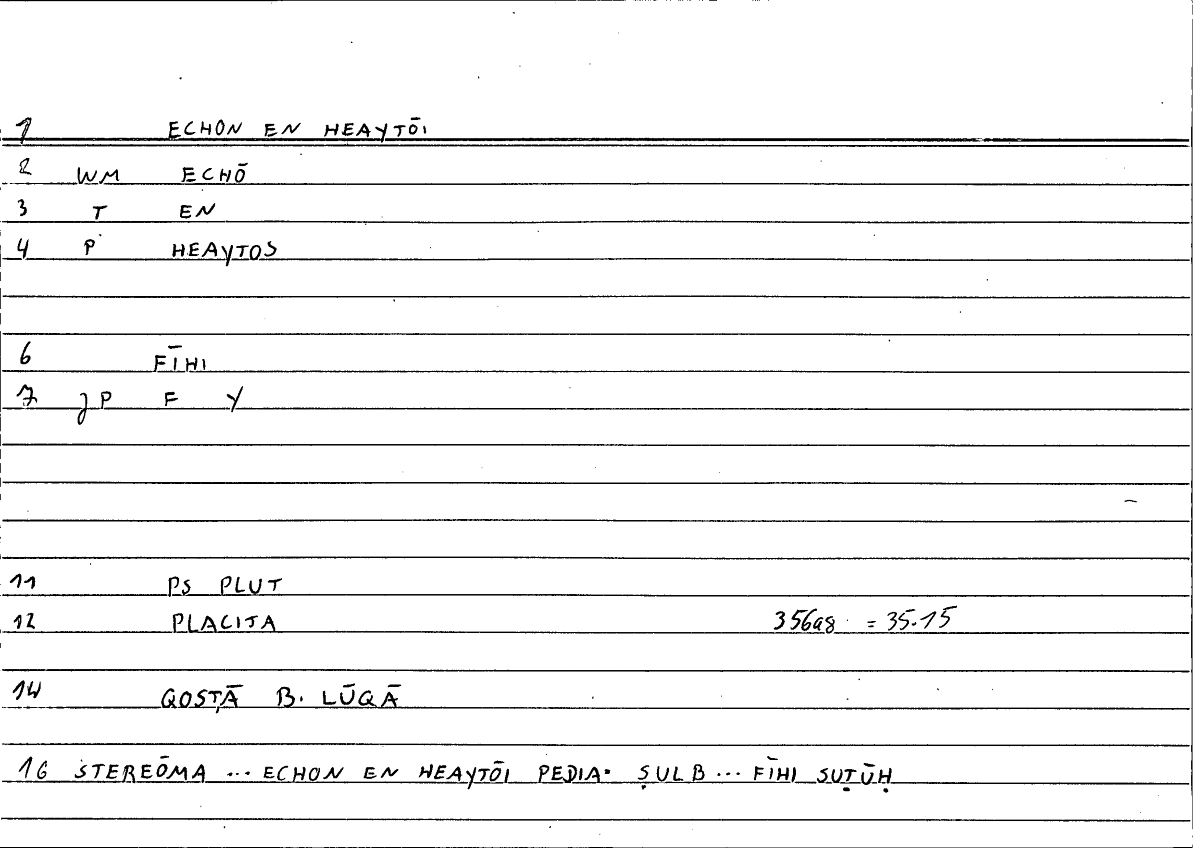 1 ECHON EN HEAYTŌI
2 WM ECHŌ
3 T EN
4 P HEAYTOS
6 FĪHI
7 JP F Y
11 PS PLUT
12 PLACITA 356a8 = 35.15
14 QOSṬĀ B. LŪQĀ
16 STEREŌMA ... ECHON EN HEAYTŌI PEDIA: ṢULB ... FĪHI SUṬŪḤ